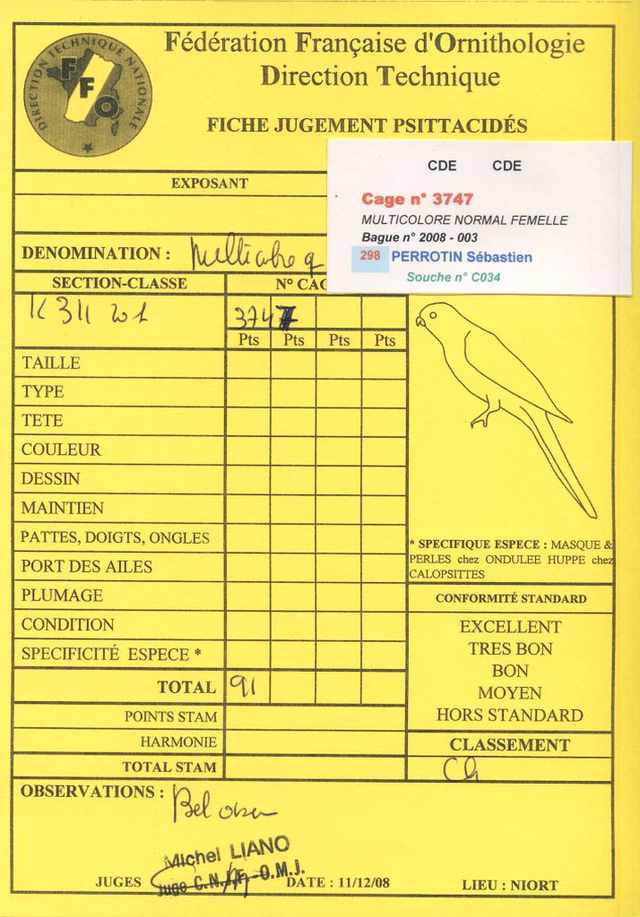 Fédération Française d'Ornithologie
Direction Technique
DIRECTION TECHNIQUE NATIONALE
FFO
FICHE JUGEMENT PSITTACIDÉS
CDE CDE
EXPOSANT
Cage n° 3747
MULTICOLORE NORMAL FEMELLE
Bague n° 2008 - 003
298 PERROTIN Sébastien
Souche n° C034
DENOMINATION :
SECTION-CLASSE
N° CAG
3747
Pts Pts Pts Pts
TAILLE
TYPE
TETE
COULEUR
DESSIN
MAINTIEN
PATTES, DOIGTS, ONGLES
PORT DES AILES
PLUMAGE
CONDITION
SPECIFICITÉ ESPECE *
TOTAL 91
POINTS STAM
HARMONIE
TOTAL STAM
* SPECIFIQUE ESPECE : MASQUE &
PERLES chez ONDULEE HUPPE chez
CALOPSITTES
CONFORMITÉ STANDARD
EXCELLENT
TRES BON
BON
MOYEN
HORS STANDARD
CLASSEMENT
OBSERVATIONS :
Bel
Michel LIANO
Juge C.N.J.F. - O.M.J.
JUGES DATE : 11/12/08 LIEU : NIORT